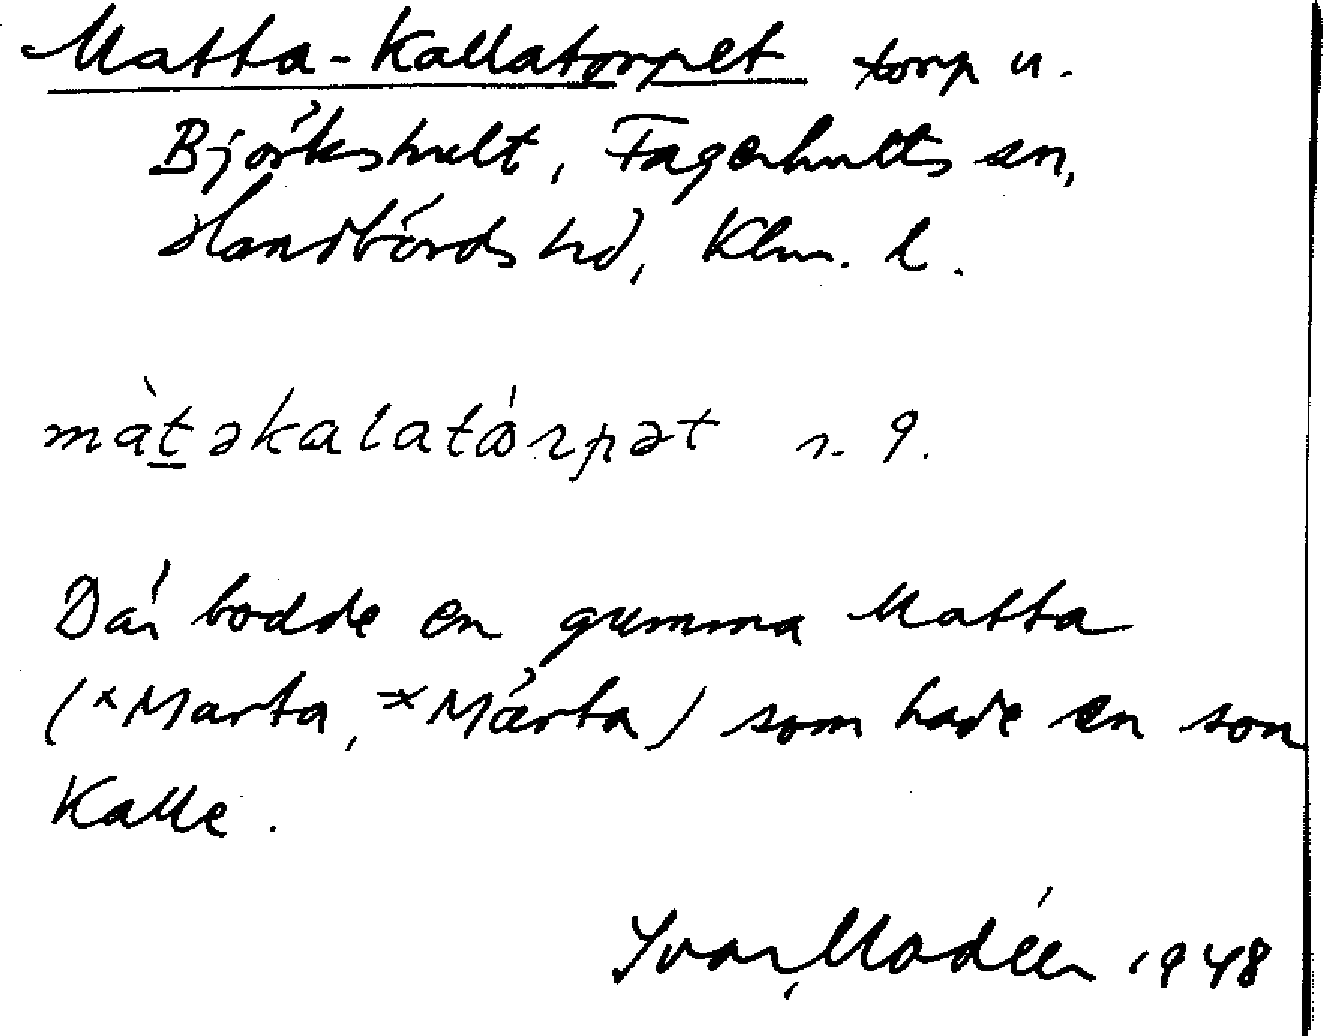 Matta-Kallatorpet torp u.
Björkshult, Fagerhults sn,
Handbörds hd, Klm. l.
màt̲əkalatórpət n. 9.
Där bodde en gumma Matta
(×Marta, ×Märta) som hade en son
Kalle.
Ivar Modéer 1948